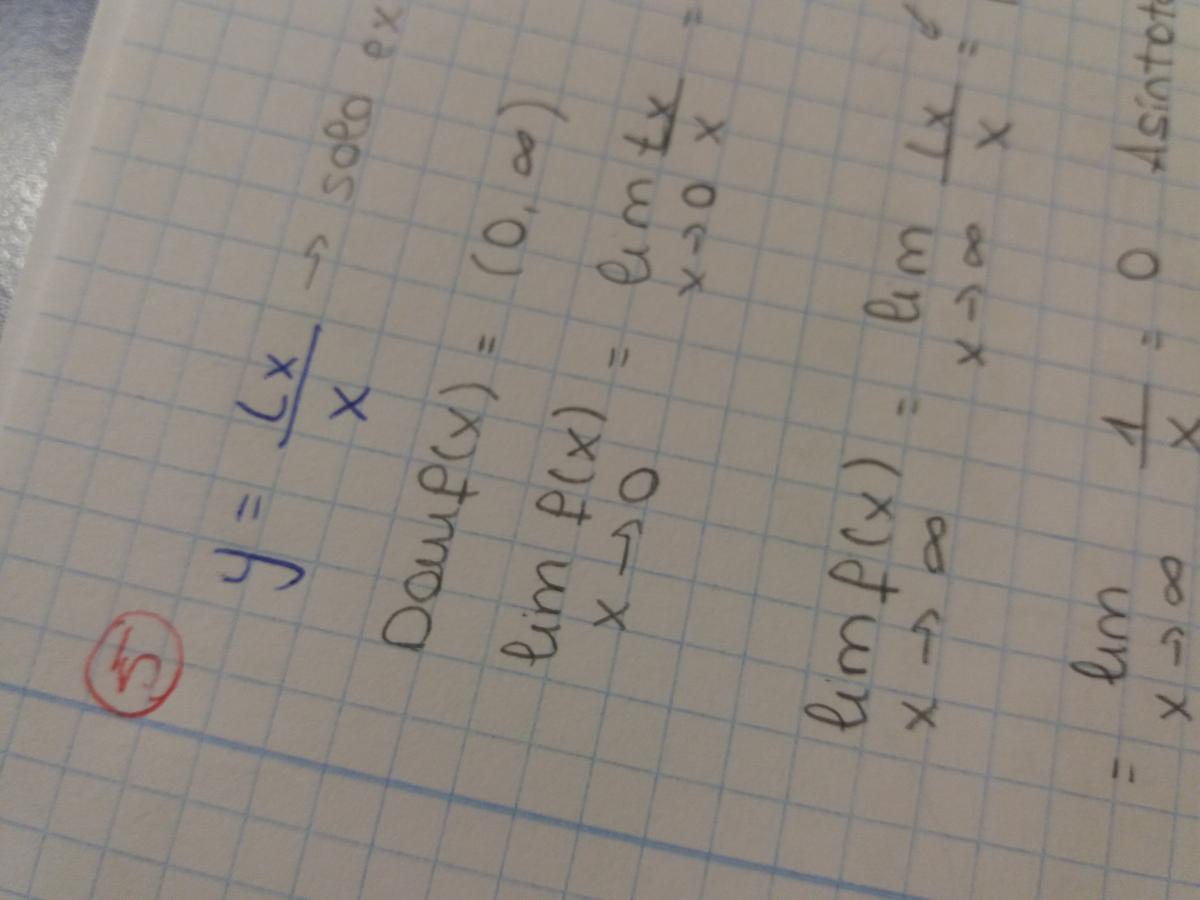 5 y = Lx/x → solo ex
Dom f(x) = (0, ∞)
lim x→0 f(x) = lim x→0 Lx/x =
lim x→∞ f(x) = lim x→∞ Lx/x =
= lim x→∞ 1/x = 0 Asintota